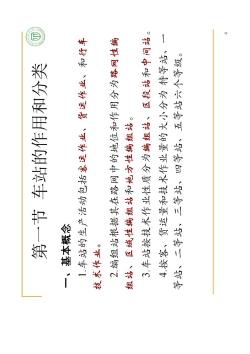 第一节 车站的作用和分类
一、基本概念
1.车站的生产活动包括客运作业、货运作业、和行车
技术作业。
2.编组站根据其在路网中的地位和作用分为路网性编
组站、区域性编组站和地方性编组站。
3.车站按技术作业性质分为编组站、区段站和中间站。
4.按客、货运量和技术作业量的大小分为 特等站、一
等站、二等站、三等站、四等站、五等站六个等级。